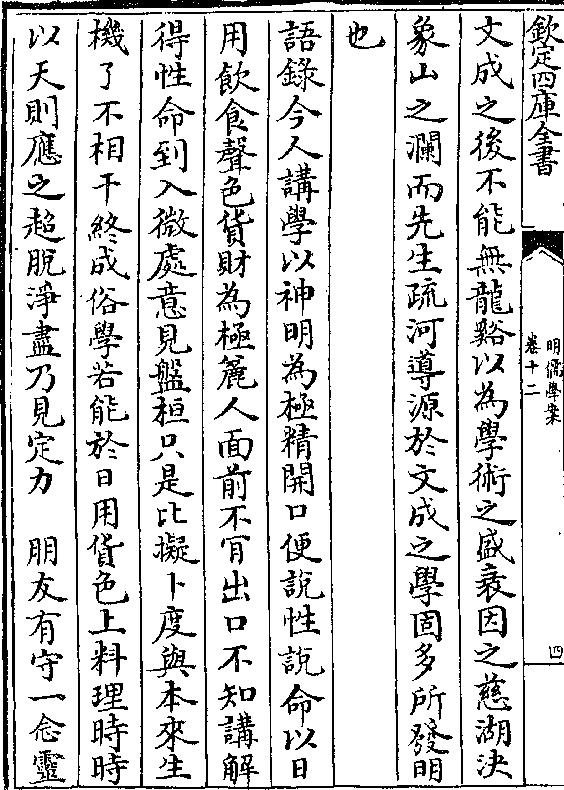 欽定四庫全書
明儒學案
卷十二
四
文成之後不能無龍谿以為學術之盛衰因之慈湖決
象山之瀾而先生疏河導源於文成之學固多所發明
也
語錄今人講學以神明為極精開口便說性說命以日
用飲食聲色貨財為極麄人面前不肎出口不知講解
得性命到入微處意見盤桓只是比擬卜度與本來生
機了不相干終成俗學若能於日用貨色上料理時時
以天則應之超脫淨盡乃見定力　朋友有守一念靈